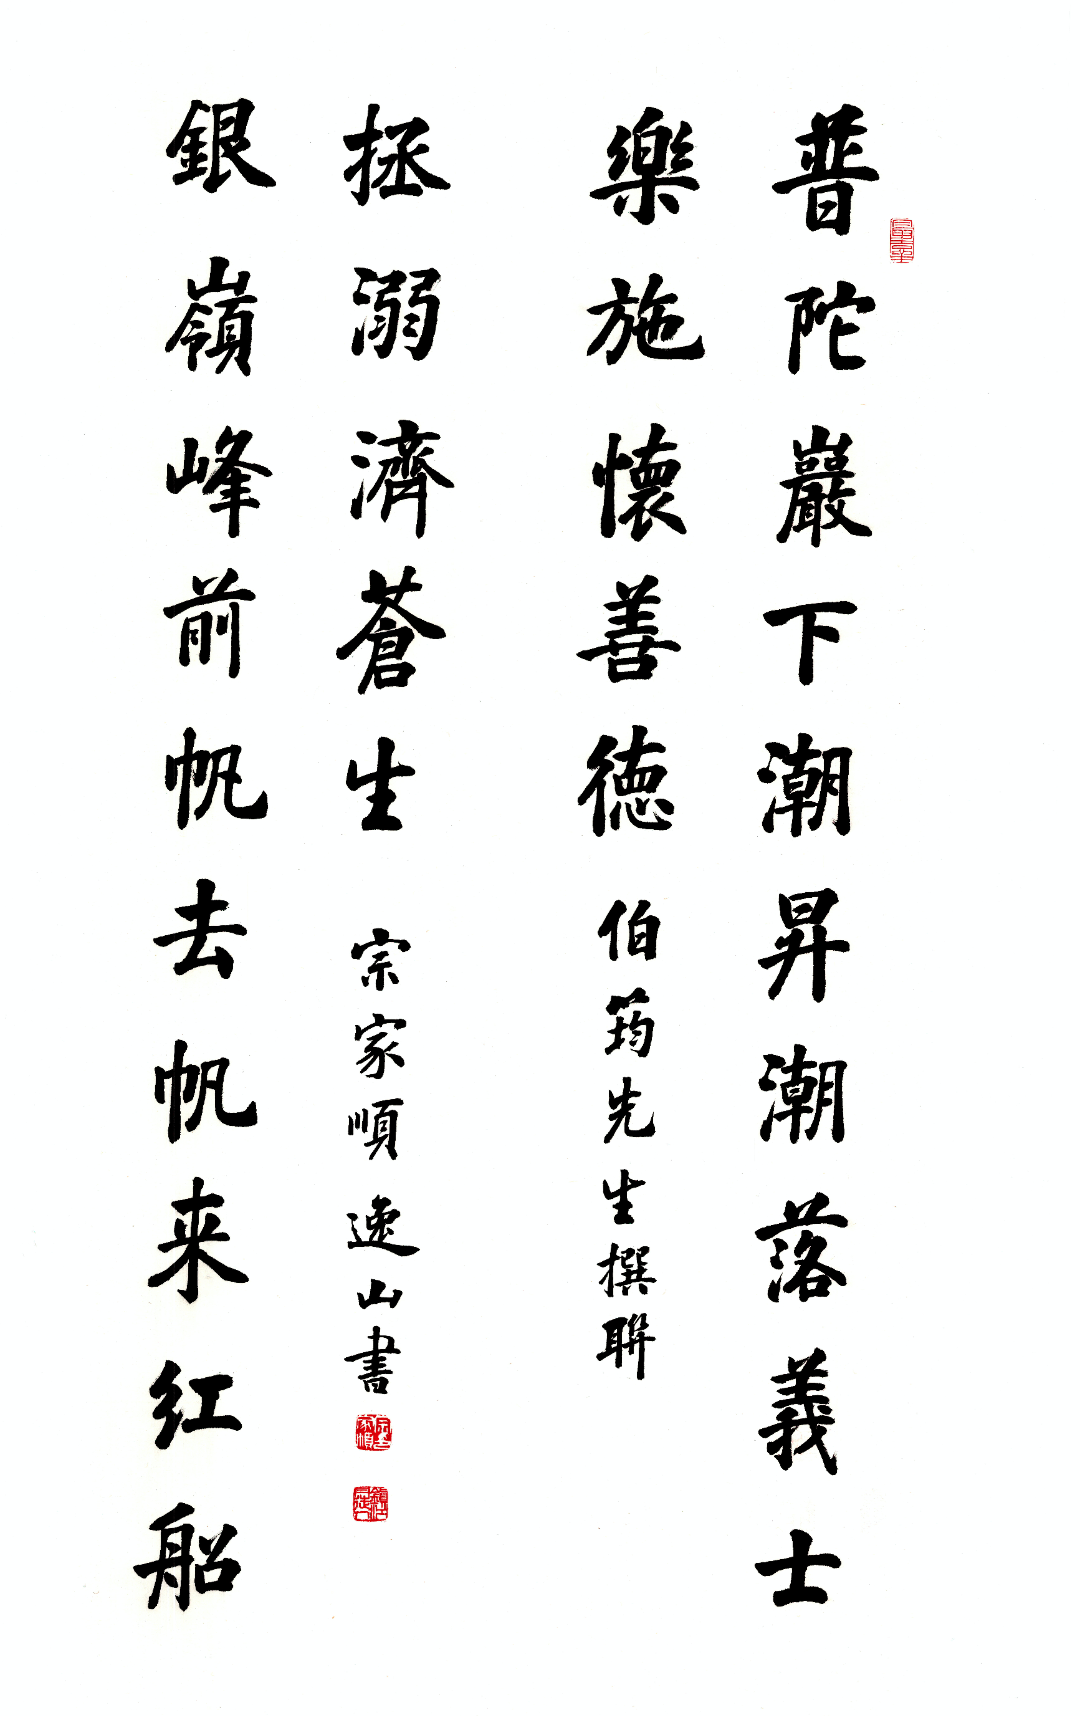 普陀巖下潮昇潮落義士
樂施懷善德 伯筠先生撰聯
銀嶺峰前帆去帆来红船
拯溺濟蒼生 宗家順 逸山書